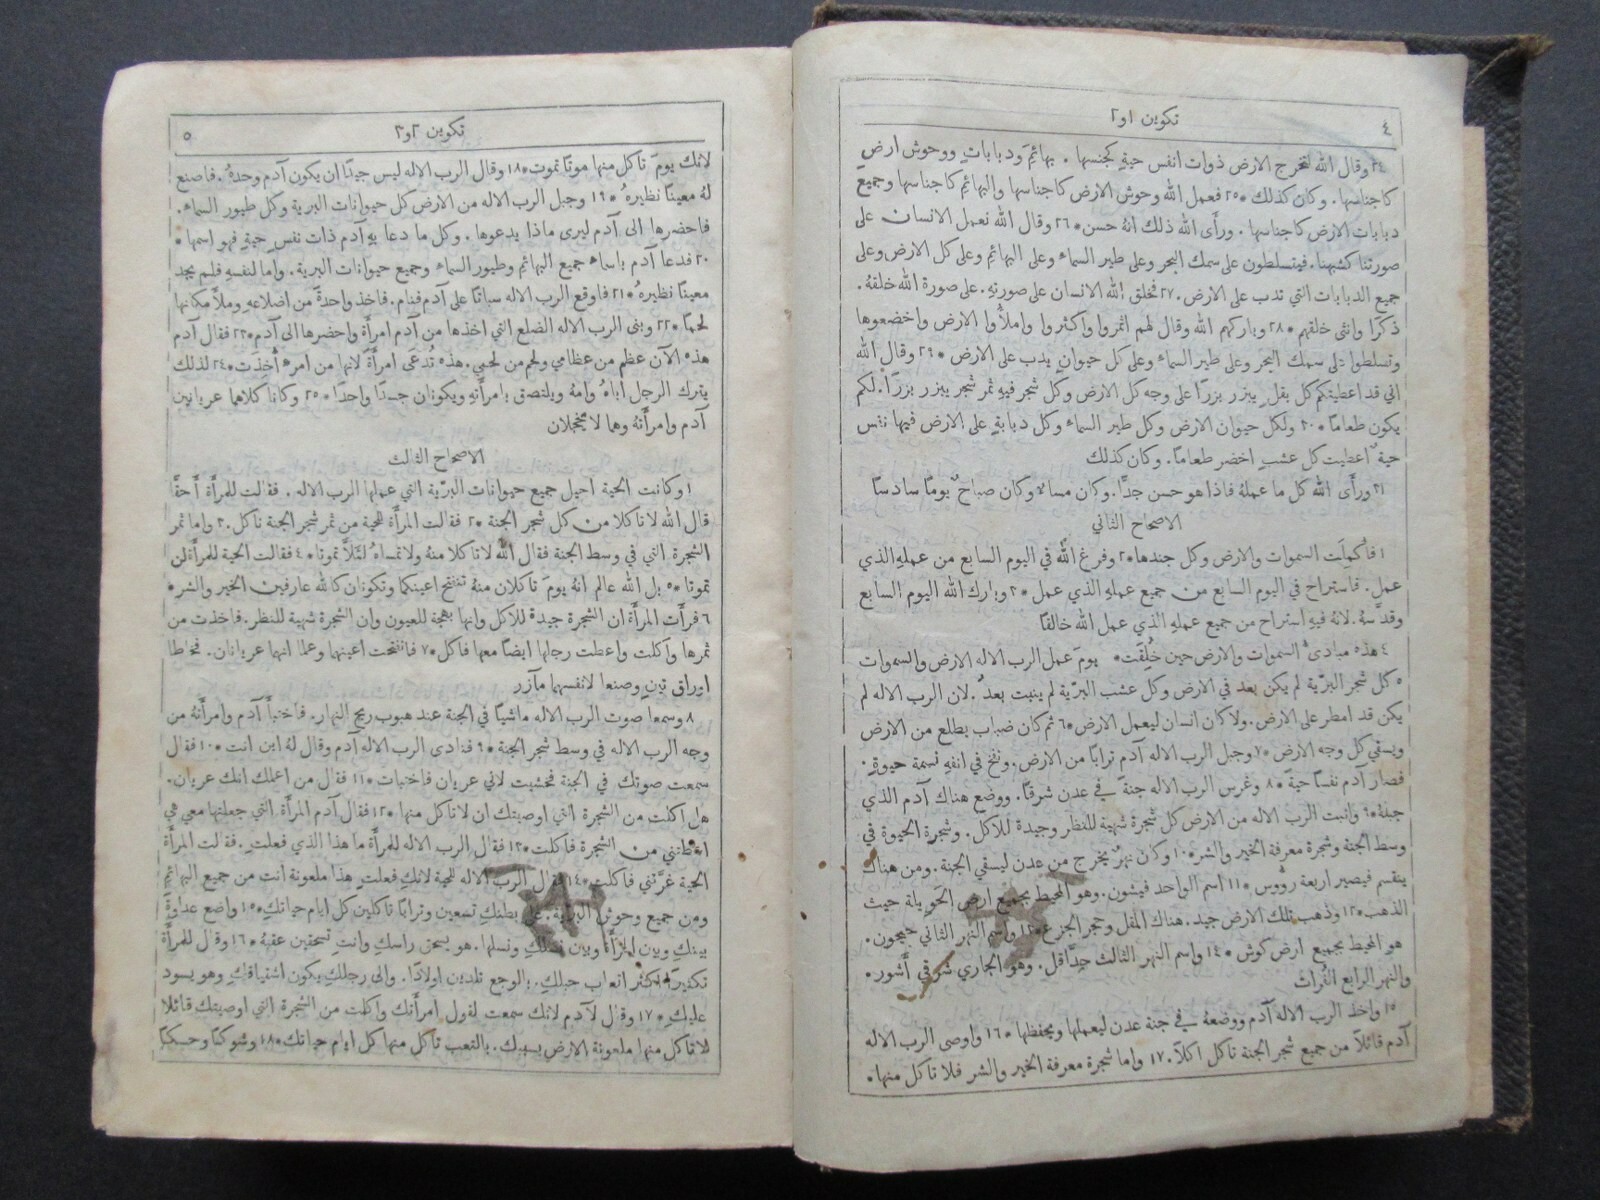 ٤
تكوين ١ و٢
٢٤ وقال الله لتخرج الارض ذوات انفس حية كجنسها . بهائمَ ودباباتٍ ووحوش ارضٍ
كاجناسها. وكان كذلك * ٢٥ فعمل الله وحوش الارض كاجناسها والبهائم كاجناسها وجميع
دبابات الارض كاجناسها . ورأى الله ذلك انهُ حسن * ٢٦ وقال الله نعمل الانسان على
صورتنا كشبهنا. فيتسلطون على سمك البحر وعلى طير السماء وعلى البهائم وعلى كل الارض وعلى
جميع الدبابات التي تدب على الارض. ٢٧ فخلق الله الانسان على صورتهِ. على صورة الله خلقهُ.
ذكرًا وانثى خلقهم * ٢٨ وباركهم الله وقال لهم اثمروا واكثروا واملأُوا الارض واخضعوها
وتسلطوا على سمك البحر وعلى طير السماء وعلى كل حيوانٍ يدب على الارض * ٢٩ وقال الله
اني قد اعطيتكم كل بقل يبزر بزرًا على وجه كل الارض وكل شجر فيهِ ثمر شجر يبزر بزرًا. لكم
يكون طعامًا * ٣٠ ولكل حيوان الارض وكل طير السماء وكل دبابةٍ على الارض فيها نفس
حية اعطيت كل عشب اخضر طعامًا. وكان كذلك
٣١ ورأَى الله كل ما عملهُ فاذا هو حسن جدًا. وكان مساءٌ وكان صباحٌ يومًا سادسًا
الاصحاح الثاني
١ فأُكملَت السموات والارض وكل جندها * ٢ وفرغ الله في اليوم السابع من عملهِ الذي
عمل. فاستراح في اليوم السابع من جميع عملهِ الذي عمل * ٣ وبارك الله اليوم السابع
وقدَّسهُ. لانهُ فيهِ استراح من جميع عملهِ الذي عمل الله خالقًا
٤ هذه مبادئُ السموات والارض حين خُلِقَت * يومَ عمل الرب الاله الارض والسموات
٥ كل شجر البرّية لم يكن بعد في الارض وكل عشب البرّية لم ينبت بعدُ. لان الرب الاله لم
يكن قد امطر على الارض. ولا كان انسان ليعمل الارض * ٦ ثم كان ضباب يطلع من الارض
ويسقي كل وجه الارض * ٧ وجبل الرب الاله آدم ترابًا من الارض. ونفخ في انفهِ نسمة حيوةٍ.
فصار آدم نفسًا حيةً * ٨ وغرس الرب الاله جنةً في عدن شرقًا. ووضع هناك آدم الذي
جبلهُ * ٩ وانبت الرب الاله من الارض كل شجرة شهية للنظر وجيدة للاكل. وشجرة الحيوة في
وسط الجنة وشجرة معرفة الخير والشر * ١٠ وكان نهرٌ يخرج من عدن ليسقي الجنة. ومن هناك
ينقسم فيصير اربعة رؤُوس * ١١ اسم الواحد فيشون. وهو المحيط بجميع ارض الحَوِيلة حيث
الذهب * ١٢ وذهب تلك الارض جيد. هناك المقل وحجر الجزع * ١٣ واسم النهر الثاني جيحون.
هو المحيط بجميع ارض كوش * ١٤ واسم النهر الثالث حِدَّاقل. وهو الجاري شرقي أَشور.
والنهر الرابع الفُرات
١٥ واخذ الرب الاله آدم ووضعهُ في جنة عدن ليعملها ويحفظها * ١٦ واوصى الرب الاله
آدم قائلًا من جميع شجر الجنة تاكل اكلًا. ١٧ واما شجرة معرفة الخير والشر فلا تاكل منها.
تكوين ٢ و٣
٥
لانك يومَ تاكل منها موتًا تموت * ١٨ وقال الرب الاله ليس جيدًا ان يكون آدم وحدهُ. فاصنع
لهُ معينًا نظيرهُ * ١٩ وجبل الرب الاله من الارض كل حيوانات البرية وكل طيور السماء.
فاحضرها الى آدم ليرى ماذا يدعوها. وكل ما دعا بهِ آدم ذات نفسٍ حيةٍ فهو اسمها *
٢٠ فدعا آدم باسماء جميع البهائم وطيور السماء وجميع حيوانات البرية. واما لنفسهِ فلم يجد
معينًا نظيرهُ * ٢١ فاوقع الرب الاله سباتًا على آدم فنام. فاخذ واحدةً من اضلاعهِ وملأَ مكانها
لحمًا * ٢٢ وبنى الرب الاله الضلع التي اخذها من آدم امرأَة واحضرها الى آدم * ٢٣ فقال آدم
هذه الآن عظم من عظامي ولحم من لحمي. هذه تُدعَى امرأَةً لانها من امرءٍ أُخِذَت * ٢٤ لذلك
يترك الرجل اباهُ وامهُ ويلتصق بامرأَتهِ ويكونان جسدًا واحدًا * ٢٥ وكانا كلاهما عريانين
آدم وامرأَتهُ وهما لا يخجلان
الاصحاح الثالث
١ وكانت الحية احيل جميع حيوانات البرّية التي عملها الرب الاله. فقالت للمرأَة أَحقًّا
قال الله لا تاكلا من كل شجر الجنة * ٢ فقالت المرأَة للحية من ثمر شجر الجنة ناكل. ٣ واما ثمر
الشجرة التي في وسط الجنة فقال الله لا تاكلا منهُ ولا تمساهُ لئلَّا تموتا * ٤ فقالت الحية للمرأَة لن
تموتا * ٥ بل الله عالم انهُ يومَ تاكلان منهُ تنفتح اعينكما وتكونان كالله عارفين الخير والشر *
٦ فرأَت المرأَة ان الشجرة جيدة للاكل وانها بهجة للعيون وان الشجرة شهية للنظر. فاخذت من
ثمرها واكلت واعطت رجلها ايضًا معها فاكل * ٧ فانفتحت اعينهما وعلما انهما عريانان. فخاطا
اوراق تينٍ وصنعا لانفسهما مآزر
٨ وسمعا صوت الرب الاله ماشيًا في الجنة عند هبوب ريح النهار. فاختبأَ آدم وامرأَتهُ من
وجه الرب الاله في وسط شجر الجنة * ٩ فنادى الرب الاله آدم وقال لهُ اين انت * ١٠ فقال
سمعت صوتك في الجنة فخشيت لاني عريان فاختبات * ١١ فقال من اعلمك انك عريان.
هل اكلت من الشجرة التي اوصيتك ان لا تاكل منها * ١٢ فقال آدم المرأَة التي جعلتها معي هي
اعطتني من الشجرة فاكلت * ١٣ فقال الرب الاله للمرأَة ما هذا الذي فعلتِ. فقالت المرأَة
الحية غرَّتني فاكلت * ١٤ فقال الرب الاله للحية لانكِ فعلتِ هذا ملعونة انت من جميع البهائم
ومن جميع وحوش البرّية. على بطنكِ تسعين وترابًا تاكلين كل ايام حياتكِ * ١٥ واضع عداوةً
بينكِ وبين المرأَة وبين نسلكِ ونسلها. هو يسحق راسكِ وانتِ تسحقين عقبهُ * ١٦ وقال للمرأَة
تكثيرًا أُكثّر اتعاب حبلكِ. بالوجع تلدين اولادًا. والى رجلكِ يكون اشتياقكِ وهو يسود
عليكِ * ١٧ وقال لآدم لانك سمعت لقول امرأَتك واكلت من الشجرة التي اوصيتك قائلًا
لا تاكل منها ملعونة الارض بسببك. بالتعب تاكل منها كل ايام حياتك * ١٨ وشوكًا وحسكًا